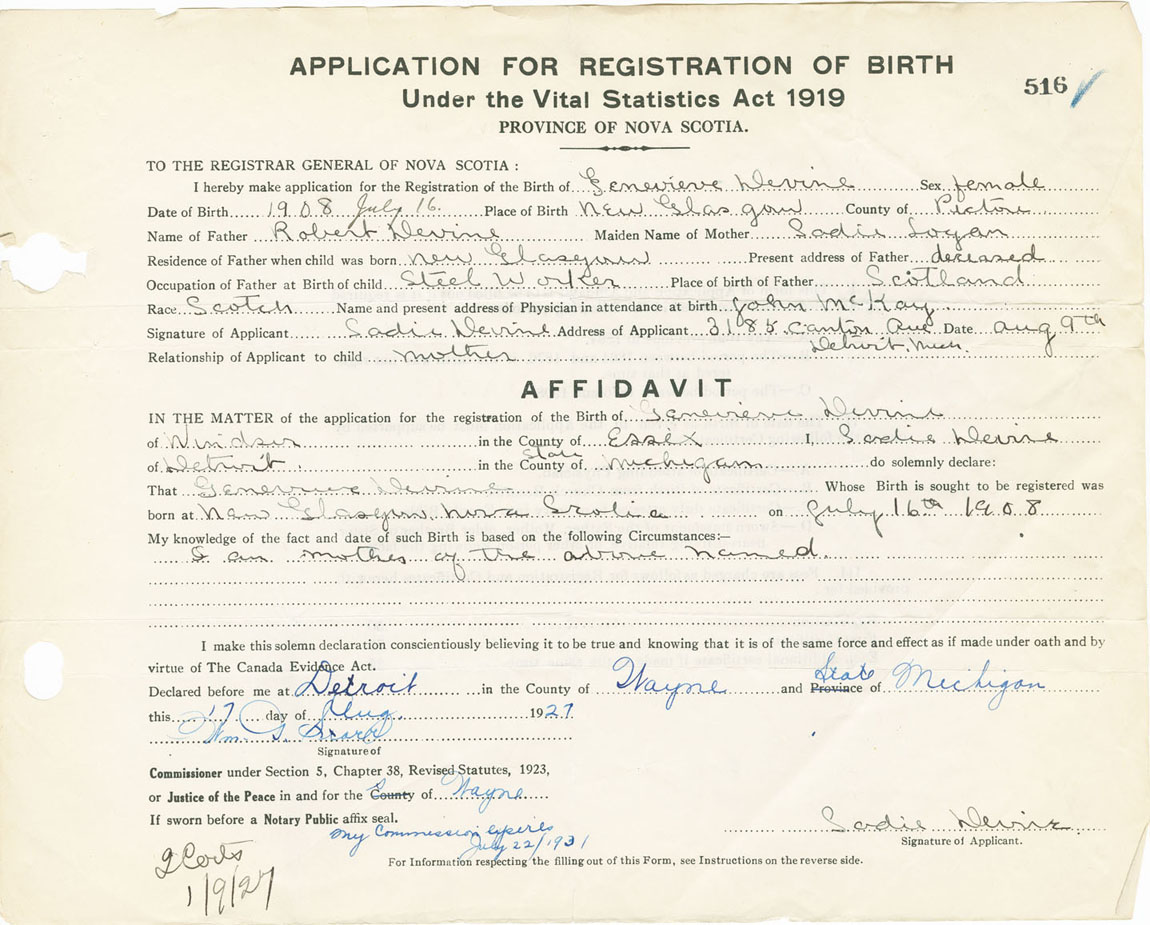 APPLICATION FOR REGISTRATION OF BIRTH
Under the Vital Statistics Act 1919
516
PROVINCE OF NOVA SCOTIA.
TO THE REGISTRAR GENERAL OF NOVA SCOTIA :
I hereby make application for the Registration of the Birth of Genevieve Devine Sex female
Date of Birth 1908 July 16. Place of Birth New Glasgow County of Pictou
Name of Father Robert Devine Maiden Name of Mother Sadie Logan
Residence of Father when child was born New Glasgow Present address of Father deceased
Occupation of Father at Birth of child Steel Worker Place of birth of Father Scotland
Race Scotch Name and present address of Physician in attendance at birth John McKay
Signature of Applicant Sadie Devine Address of Applicant 3185 Canton Ave Date Aug 9th
Detroit, Mich.
Relationship of Applicant to child mother
AFFIDAVIT
IN THE MATTER of the application for the registration of the Birth of Genevieve Devine
of Windsor in the County of Essex I, Sadie Devine
State
of Detroit in the County of Michigan do solemnly declare:
That Genevieve Devine Whose Birth is sought to be registered was
born at New Glasgow, Nova Scotia on July 16th 1908
My knowledge of the fact and date of such Birth is based on the following Circumstances:—
I am mother of the above named.
I make this solemn declaration conscientiously believing it to be true and knowing that it is of the same force and effect as if made under oath and by
virtue of The Canada Evidence Act.
State
Declared before me at Detroit in the County of Wayne and Province of Michigan
this 17 day of Aug. 1927
Wm. G.
Signature of
Commissioner under Section 5, Chapter 38, Revised Statutes, 1923,
or Justice of the Peace in and for the County of Wayne
If sworn before a Notary Public affix seal.
My Commission expires
July 22/1931
Sadie Devine
Signature of Applicant.
For Information respecting the filling out of this Form, see Instructions on the reverse side.
2
1/9/27